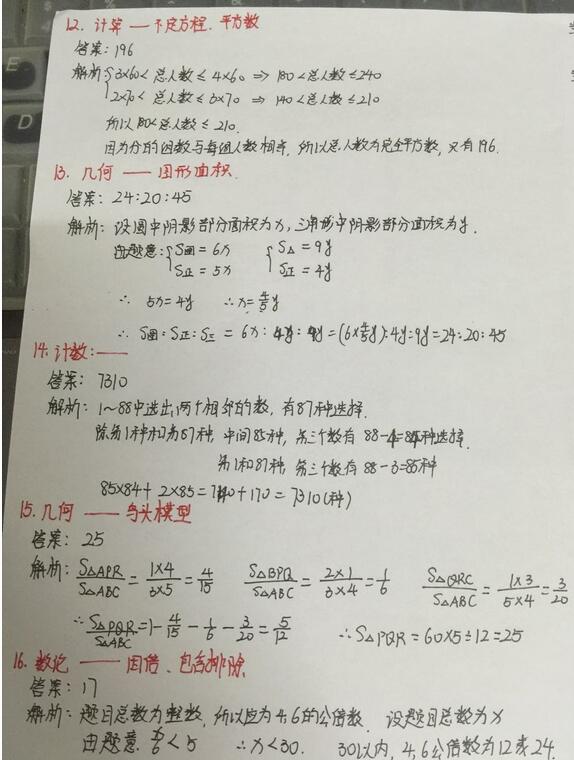 12. 计算 —— 不定方程、平方数
答案: 196
解析: 3×60< 总人数 ≤ 4×60 ⇒ 180<总人数≤240
2×70< 总人数 ≤ 3×70 ⇒ 140<总人数≤210
所以180<总人数≤210.
因为分的组数与每组人数相等, 所以总人数为完全平方数, 只有196.
13. 几何 —— 图形面积
答案: 24:20:45
解析: 设圆中阴影部分面积为x, 三角形中阴影部分面积为y.
由题意: S圆=6x S△=9y
S正=5x S正=4y
∴ 5x=4y ∴x=4/5y
∴ S圆:S正:S三 = 6x:4y:9y=(6×4/5y):4y:9y=24:20:45
14. 计数: ——
答案: 7310
解析: 1~88中选出两个相邻的数, 有87种选择.
除第1种和第87种, 中间85种, 第三个数有 88-4=84种选择.
第1和87种, 第三个数有 88-3=85种
85×84+2×85=7140+170=7310(种)
15. 几何 —— 鸟头模型
答案: 25
解析: S△APR/S△ABC=1×4/3×5=4/15 S△BPQ/S△ABC=2×1/3×4=1/6 S△QRC/S△ABC=1×3/5×4=3/20
∴ S△PQR/S△ABC=1-4/15-1/6-3/20=5/12 ∴S△PQR=60×5÷12=25
16. 数论 —— 因倍、包含排除
答案: 17
解析: 题目总数为整数, 所以应为4,6的公倍数. 设题目总数为x
由题意 x/6<5 ∴x<30. 30以内, 4,6公倍数为12或24.